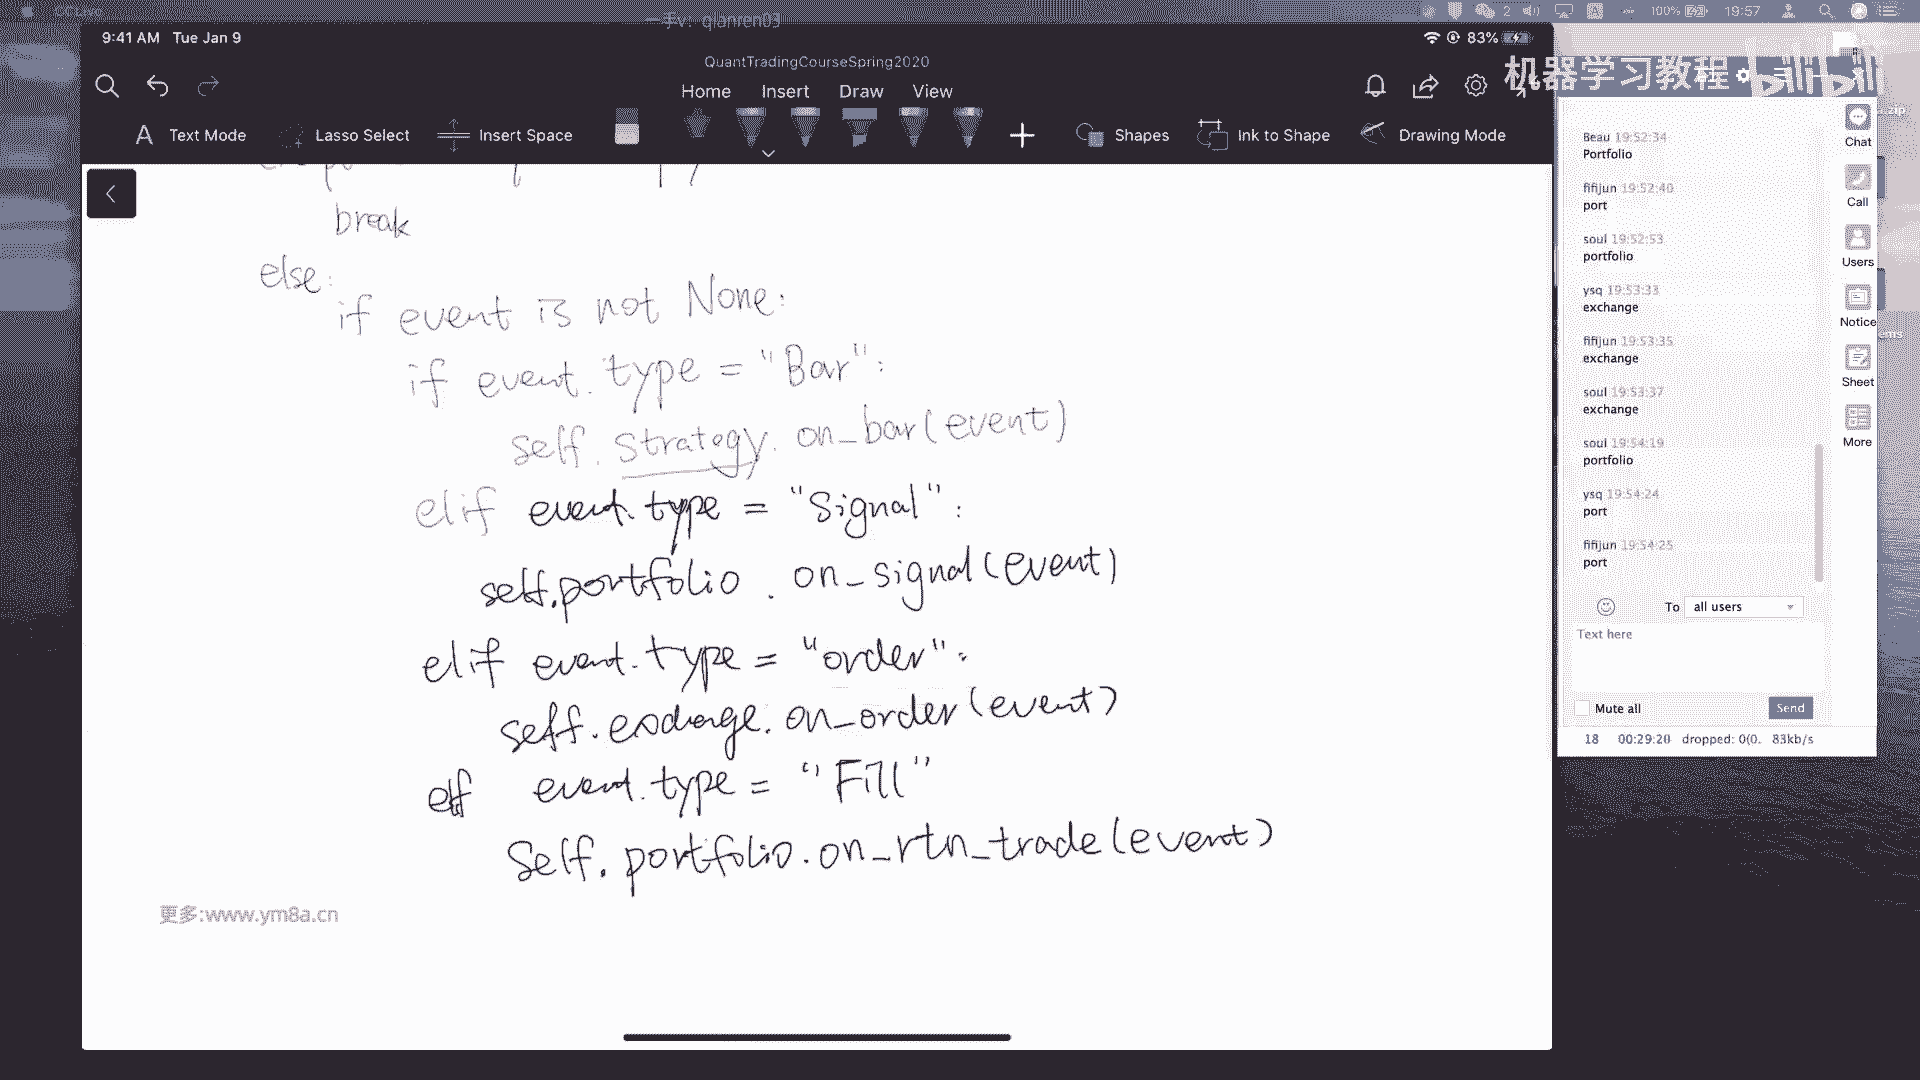 CCLive
一手v：qianren03
100%
19:57
9:41 AM Tue Jan 9
83%
QuantTradingCourseSpring2020
机器学习教程 bilibili
Home Insert Draw View
Text Mode
Lasso Select
Insert Space
Shapes
Ink to Shape
Drawing Mode
break
else:
if event is not None:
if event.type = "Bar":
self.strategy.on_bar(event)
elif event.type = "Signal":
self.portfolio.on_signal(event)
elif event.type = "order":
self.exchange.on_order(event)
elif event.type = "Fill"
self.portfolio.on_rtn_trade(event)
更多:www.ym8a.cn
Beau 19:52:34
Portfolio
fifijun 19:52:40
port
soul 19:52:53
portfolio
ysq 19:53:33
exchange
fifijun 19:53:35
exchange
soul 19:53:37
exchange
soul 19:54:19
portfolio
ysq 19:54:24
port
fifijun 19:54:25
port
To all users
Text here
Mute all
Send
18 00:29:20 dropped: 0(0. 83kb/s
Chat
Call
Users
Notice
Sheet
More
.zip
ems